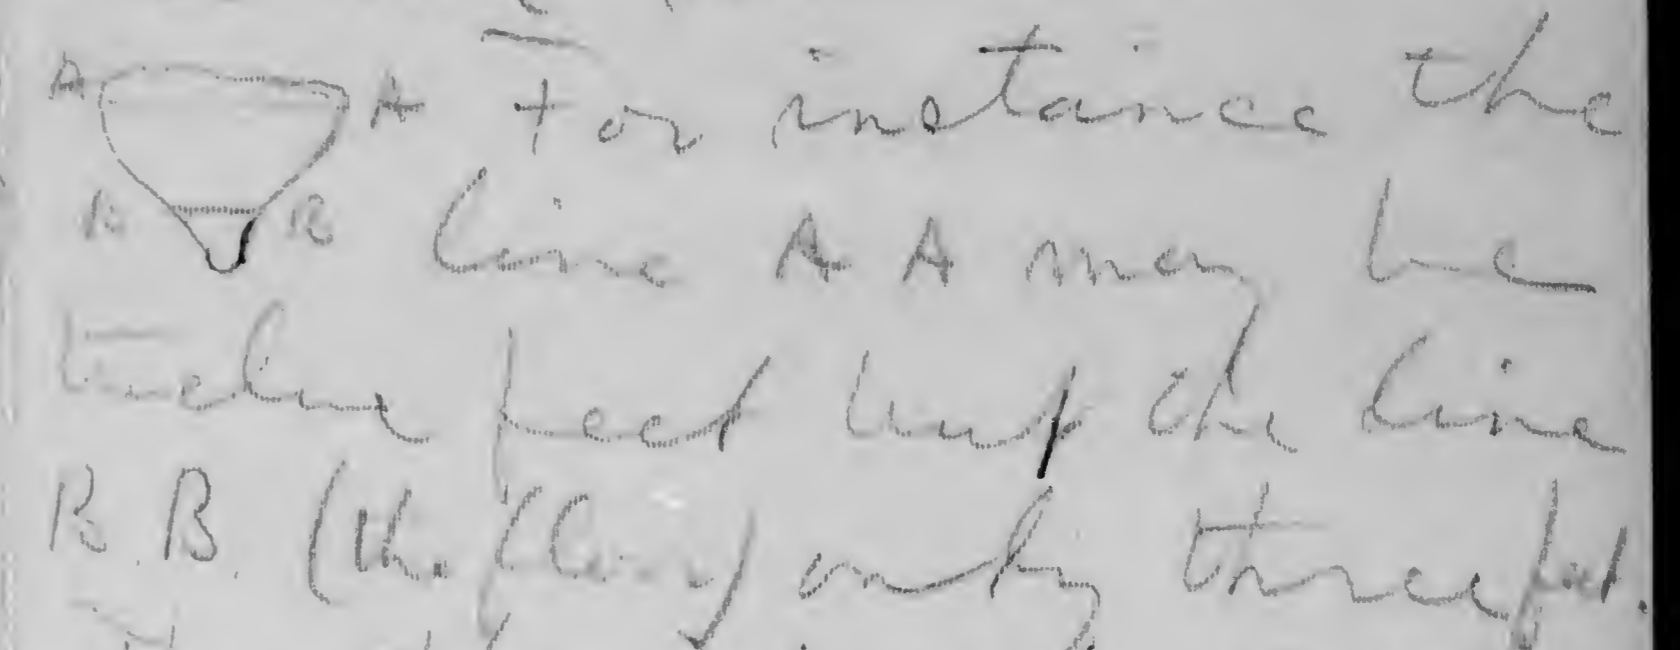 A A For instance the
B B line A A may be
twelve feet but the line
B.B. (the floor) only three feet.